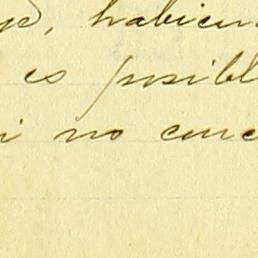 habien
es posibl
i no conc